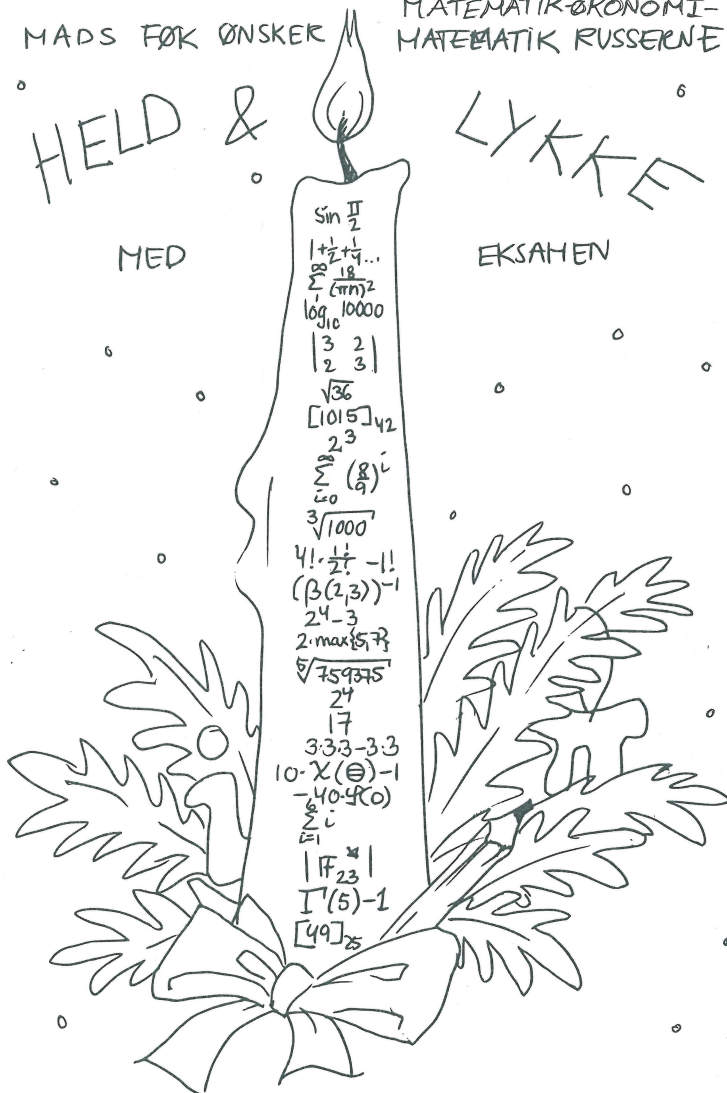 MADS FØK ØNSKER
MATEMATIK-ØKONOMI-
MATEMATIK RUSSERNE
HELD & LYKKE
MED EKSAMEN
sin π/2
1+1/2+1/4...
∑_1^∞ 18/(πn)²
log₁₀ 10000
|3 2|
|2 3|
√36
[1015]₄₂
2³
∑_{i=0}^∞ (8/9)^i
³√1000
4!·1!/2! -1!
(β(2,3))⁻¹
2⁴-3
2·max{5,7}
⁵√759375
2⁴
17
3·3·3-3·3
10·χ(⊖)-1
-40·ζ(0)
∑_{i=1}^6 i
|F₂₃*|
Γ(5)-1
[49]₂₅